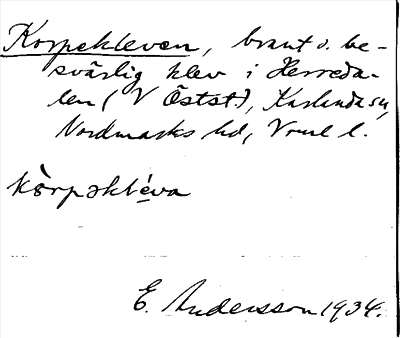 Korpekleven, brant o. be-
svärlig klev i Herreda-
len (V Östst.), Karlanda sn,
Nordmarks hd, Vrml l.
kòrpəkléva
E. Andersson 1934.